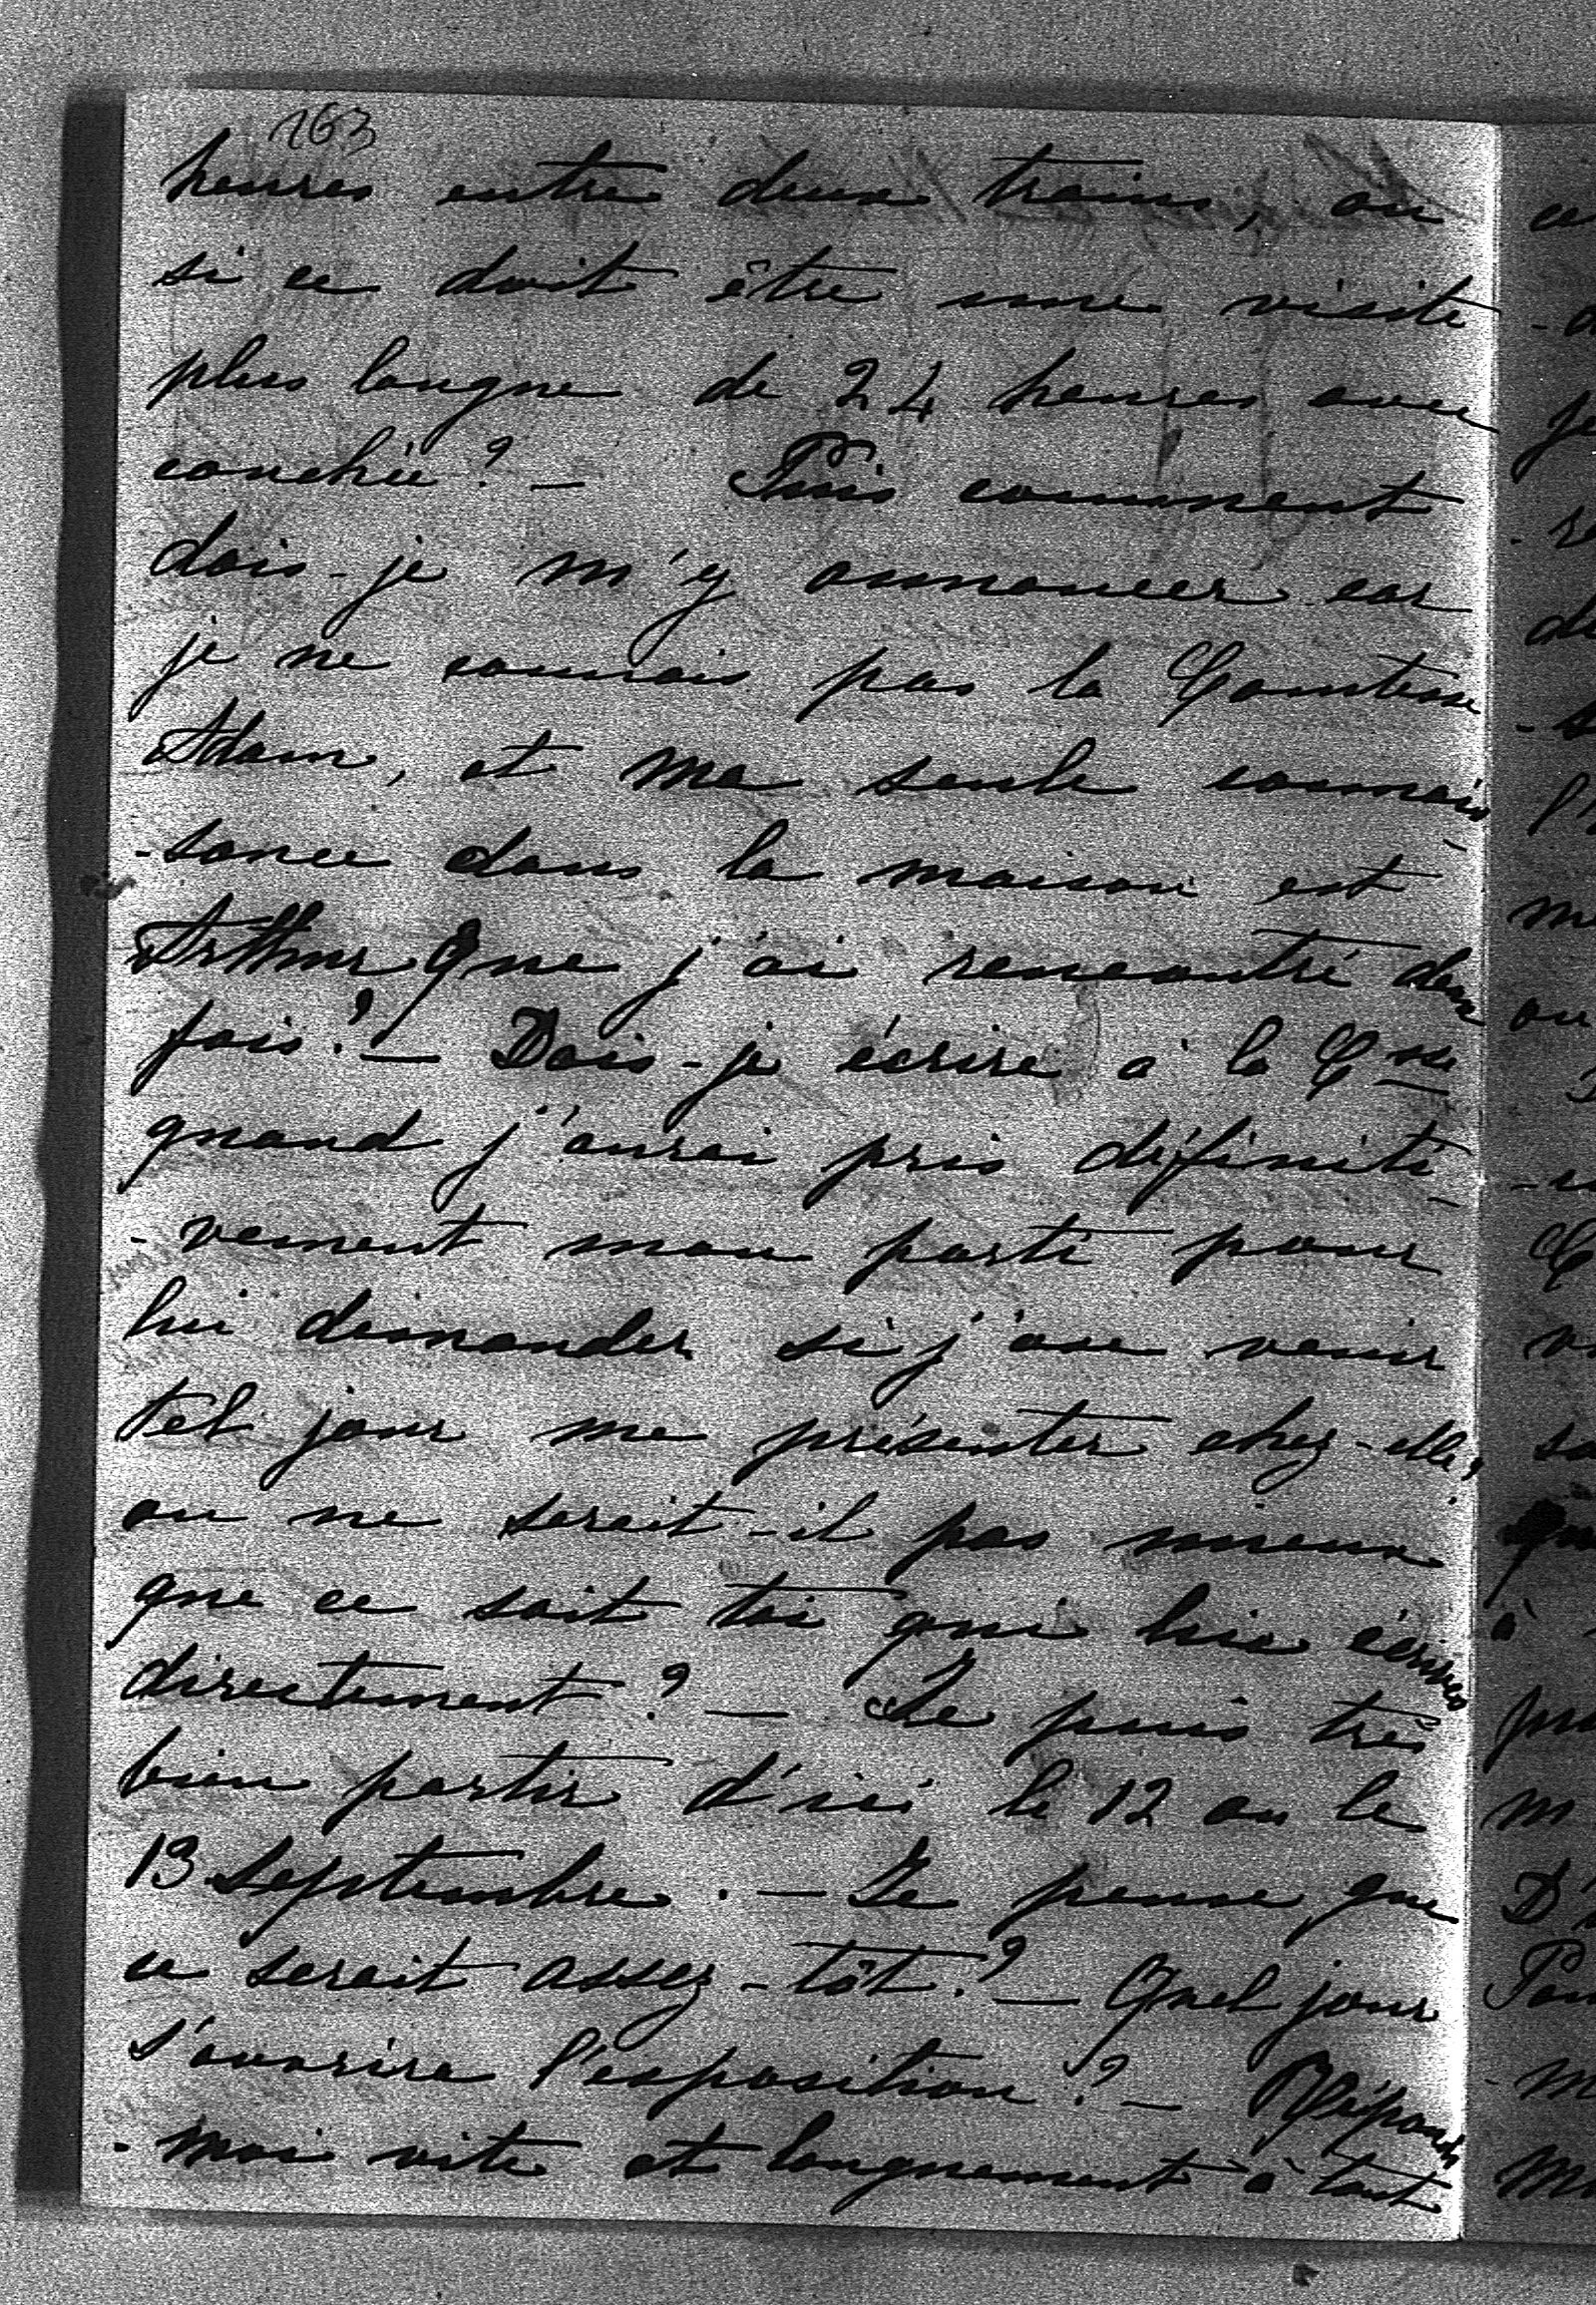 163
heures entre deux trains, ou
si ce doit être une visite
plus longue de 24 heures avec
couchée ? — Puis comment
dois-je m'y annoncer car
je ne connais pas la Comtesse
Adam, et ma seule connais-
-sance dans la maison est
Arthur que j'ai rencontré deux
fois ? — Dois-je écrire à la Csse
quand j'aurai pris définiti-
-vement mon parti pour
lui demander si j'ose venir
tel jour me présenter chez-elle,
ou ne serait-il pas mieux
que ce soit toi qui lui écrives
directement ? — Je puis très
bien partir d'ici le 12 ou le
13 Septembre. — Je pense que
ce serait assez-tôt ? — Quel jour
s'ouvrira l'exposition ? — Réponds
-moi vite et longuement à tout